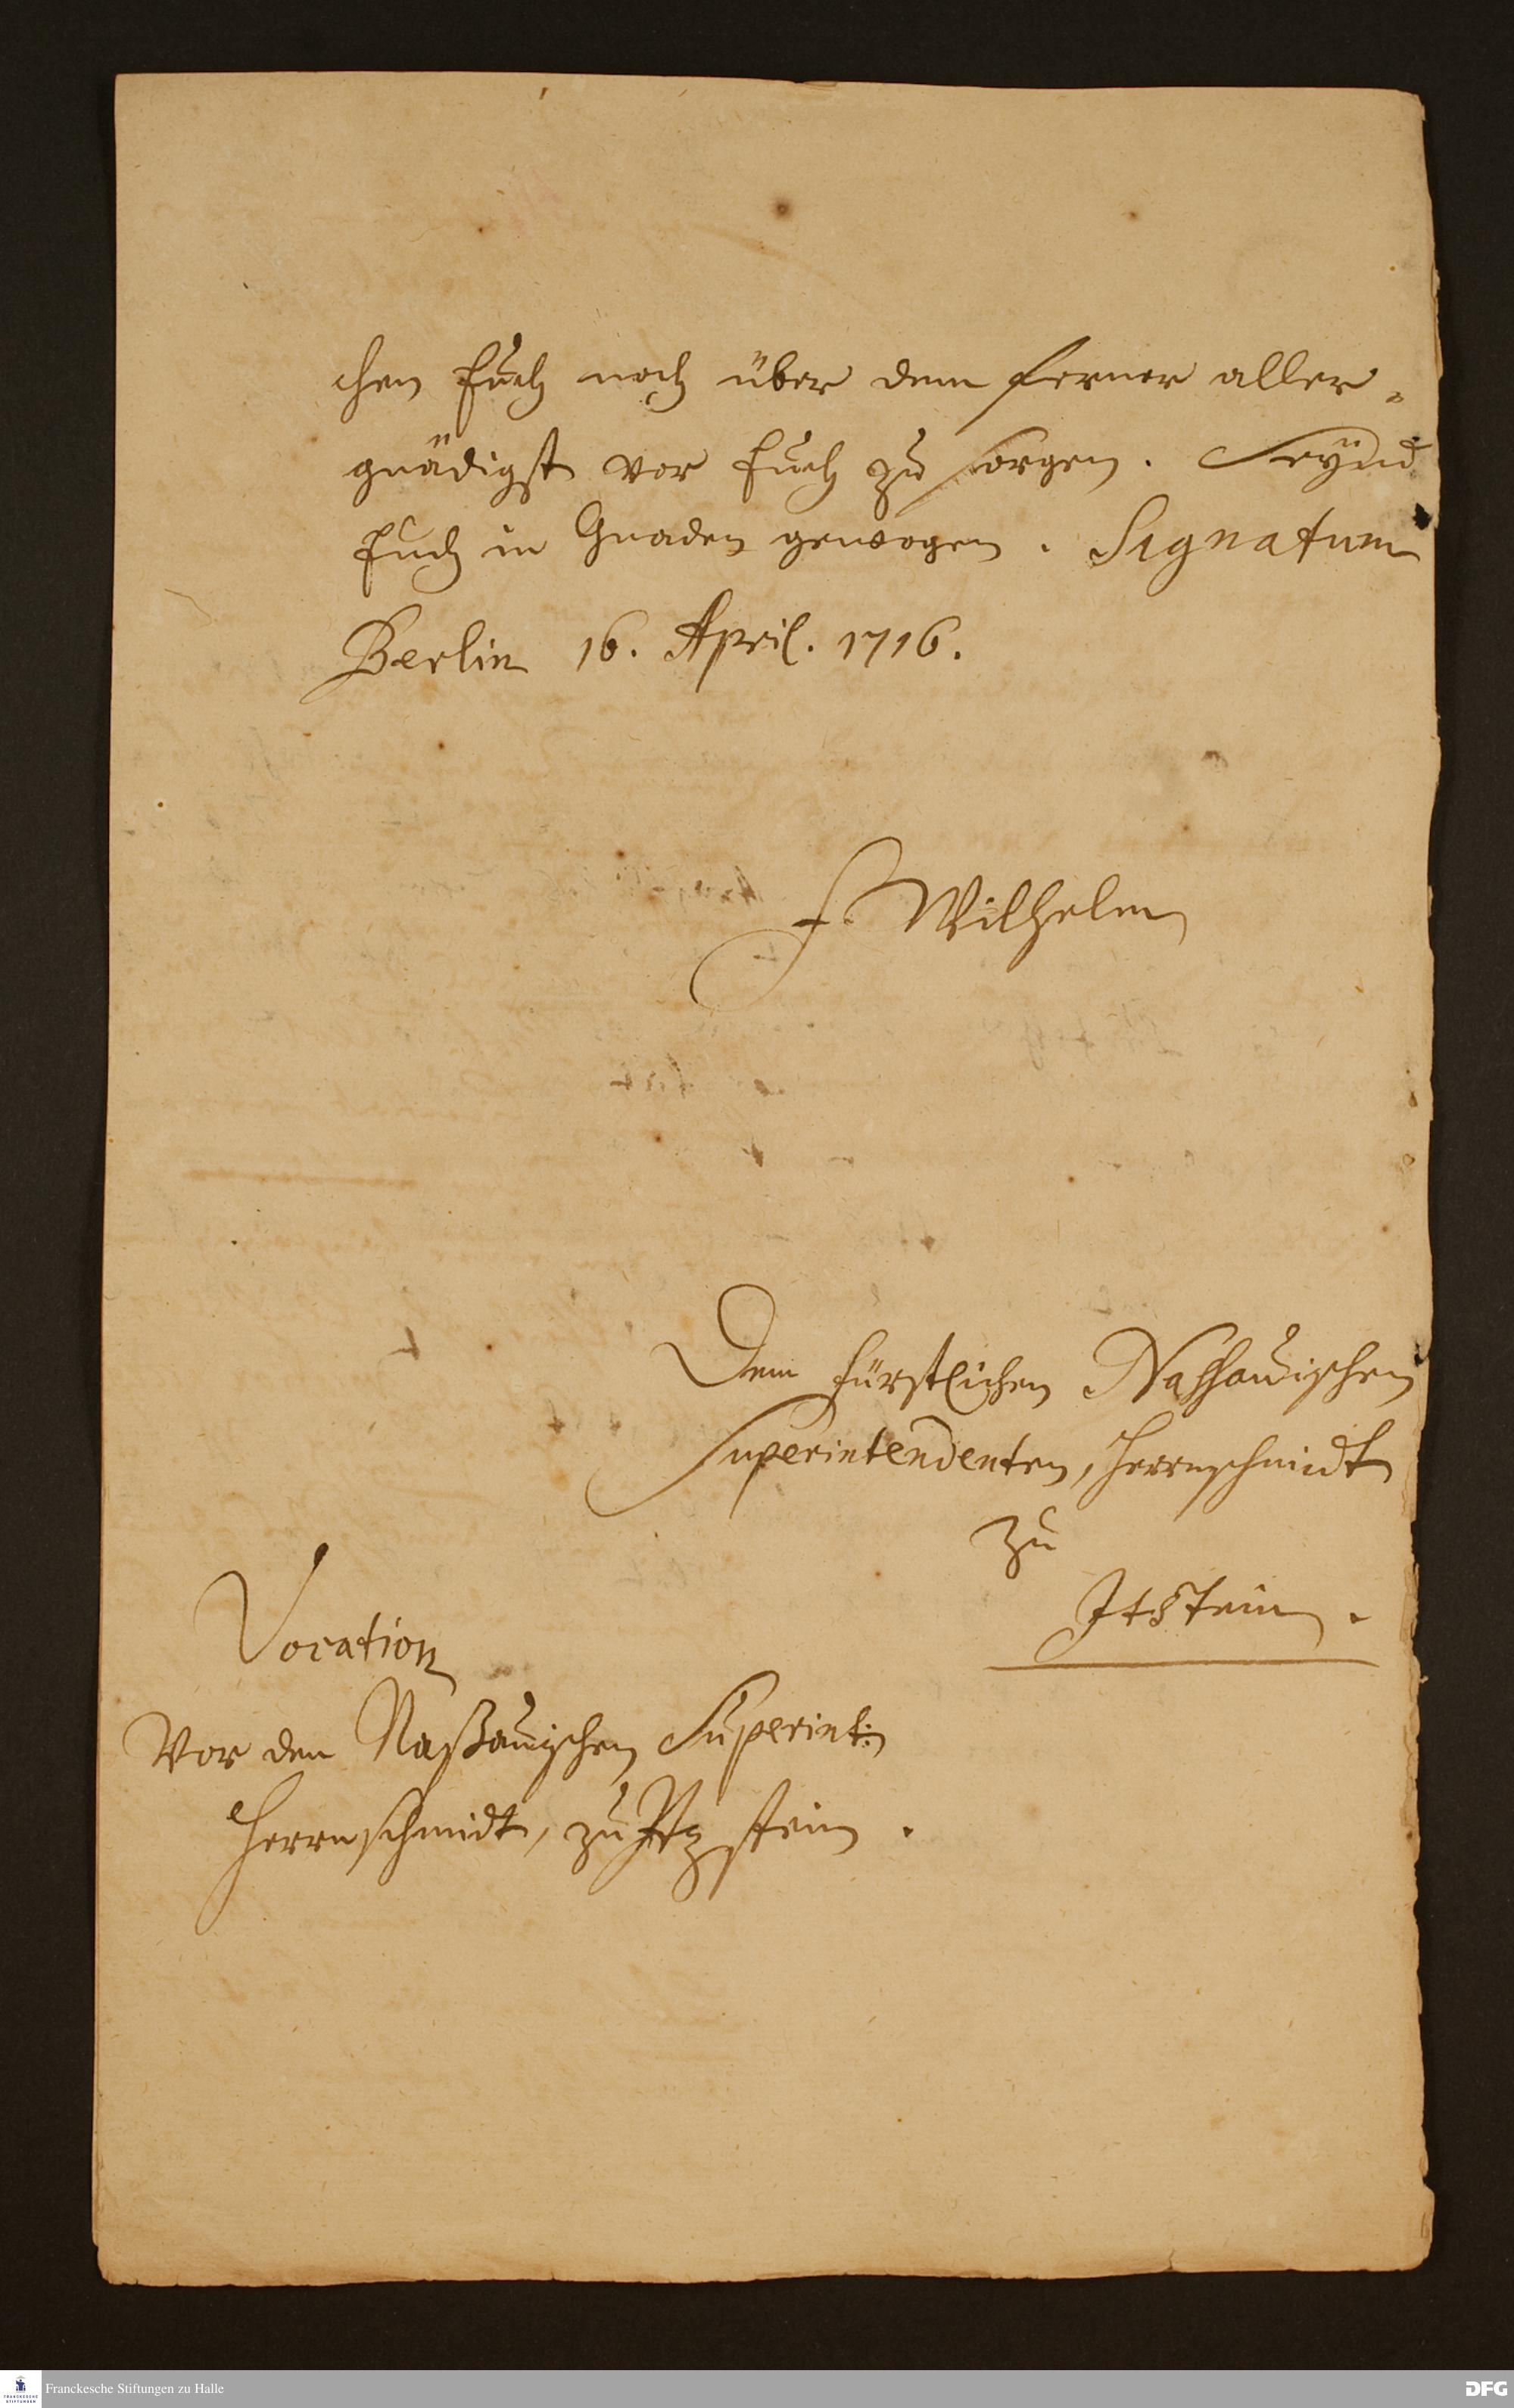 chen Euch noch über dem ferner aller-
gnädigst vor Euch zu sorgen. Seÿnd
Euch in Gnaden gewogen. Signatum
Berlin 16. April. 1716.
F. Wilhelm
Dem Fürstlichen Nassauischen
Superintendenten, Herrnschmidt
zu
Itstein.
Vocation
Vor den Naßauischen Superint:
Herrnschmidt, zu Itzstein.
FRANCKESCHE
STIFTUNGEN
Franckesche Stiftungen zu Halle
DFG